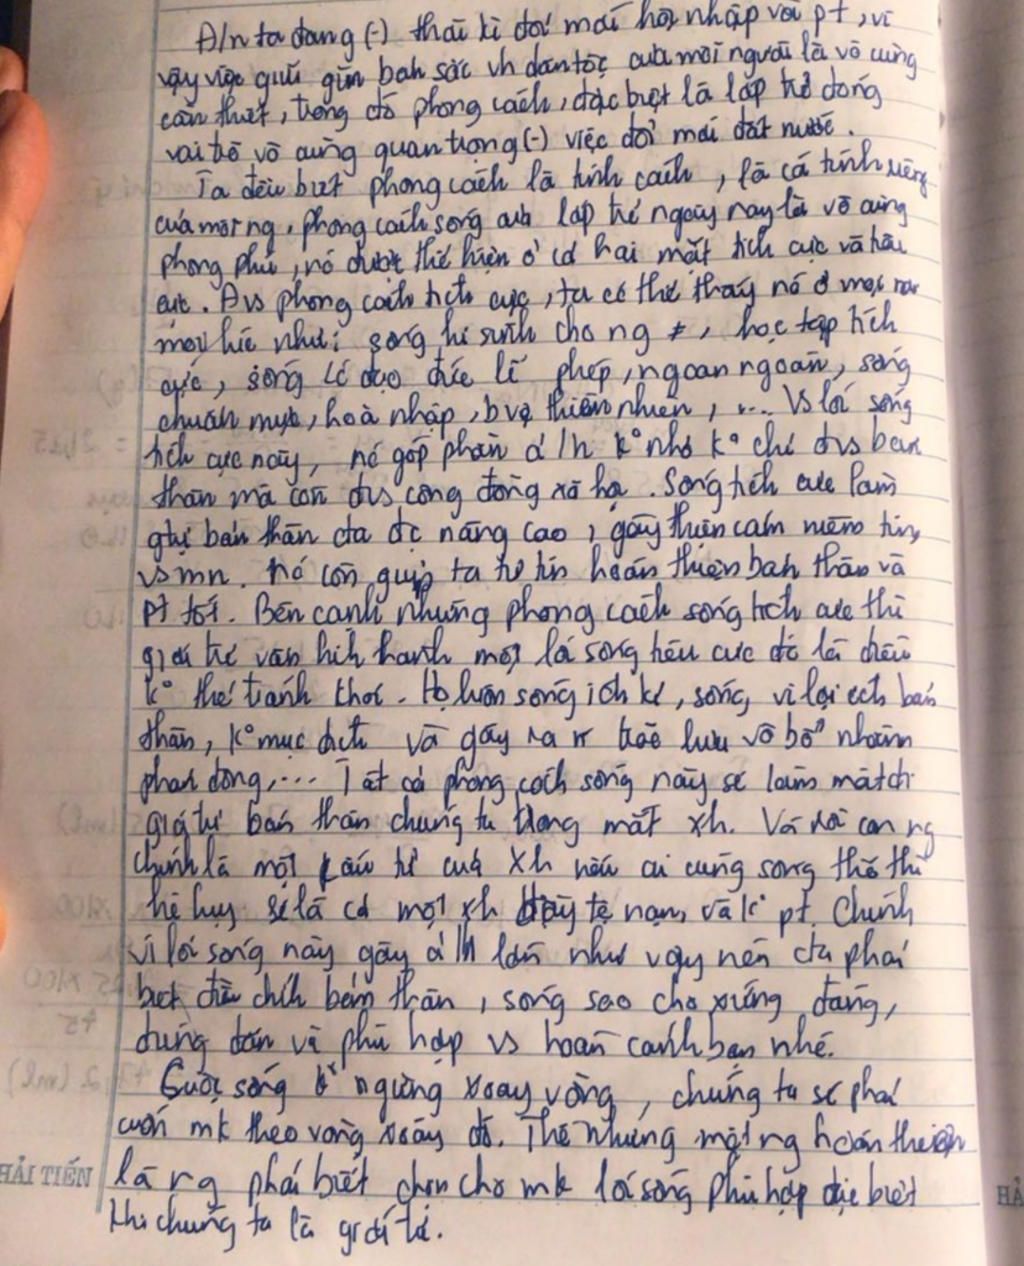 Đ/n ta đang (-) thời kì đổi mới hội nhập với pt, vì
vậy việc giữ gìn bản sắc vh dân tộc của mỗi người là vô cùng
cần thiết, trong đó phong cách, đặc biệt là lớp trẻ đóng
vai trò vô cùng quan trọng (-) việc đổi mới đất nước.
Ta đều biết phong cách là tính cách, là cá tính riêng
của mỗi ng, phong cách sống của lớp trẻ ngày nay là vô cùng
phong phú, nó được thể hiện ở cả hai mặt tích cực và tiêu
cực. Đvs phong cách tích cực, ta có thể thấy nó ở mọi nơi
mọi lúc như: sống hi sinh cho ng ≠, học tập tích
cực, sống có đạo đức lễ phép, ngoan ngoãn, sống
chuẩn mực, hoà nhập, bvệ thiên nhiên, .... Vs lối sống
tích cực này, nó góp phần ả/h k° nhỏ k° chỉ đvs bản
thân mà còn đvs cộng đồng xã hội. Sống tích cực làm
gtrị bản thân cta đc nâng cao, gây thiện cảm niềm tin,
vs mn. nó còn giúp ta tự tin hoàn thiện bản thân và
pt tốt. Bên cạnh những phong cách sống tích cực thì
giới trẻ vẫn hình thành một lối sống tiêu cực đó là điều
k° thể tránh khỏi. Họ luôn sống ích kỉ, sống vì lợi ích bản
thân, k° mục đích và gây ra trào lưu vô bổ nhằm
phản động,.... Tất cả phong cách sống này sẽ làm mất đi
giá trị bản thân chúng ta trong mắt xh. Và rồi con ng
chính là một cấu tử của xh nếu ai cũng sống thế thì
hệ luỵ sẽ là cả một xh đầy tệ nạn, và k° pt. Chính
vì lối sống này gây ả/h lớn như vậy nên cta phải
biết điều chỉnh bản thân, sống sao cho xứng đáng,
đúng đắn và phù hợp vs hoàn cảnh bạn nhé.
Cuộc sống k° ngừng xoay vòng, chúng ta sẽ phải
cuốn mk theo vòng xoáy đó. Thế nhưng một ng hoàn thiện
là ng phải biết chọn cho mk lối sống phù hợp đặc biệt
khi chúng ta là giới trẻ.
HẢI TIẾN